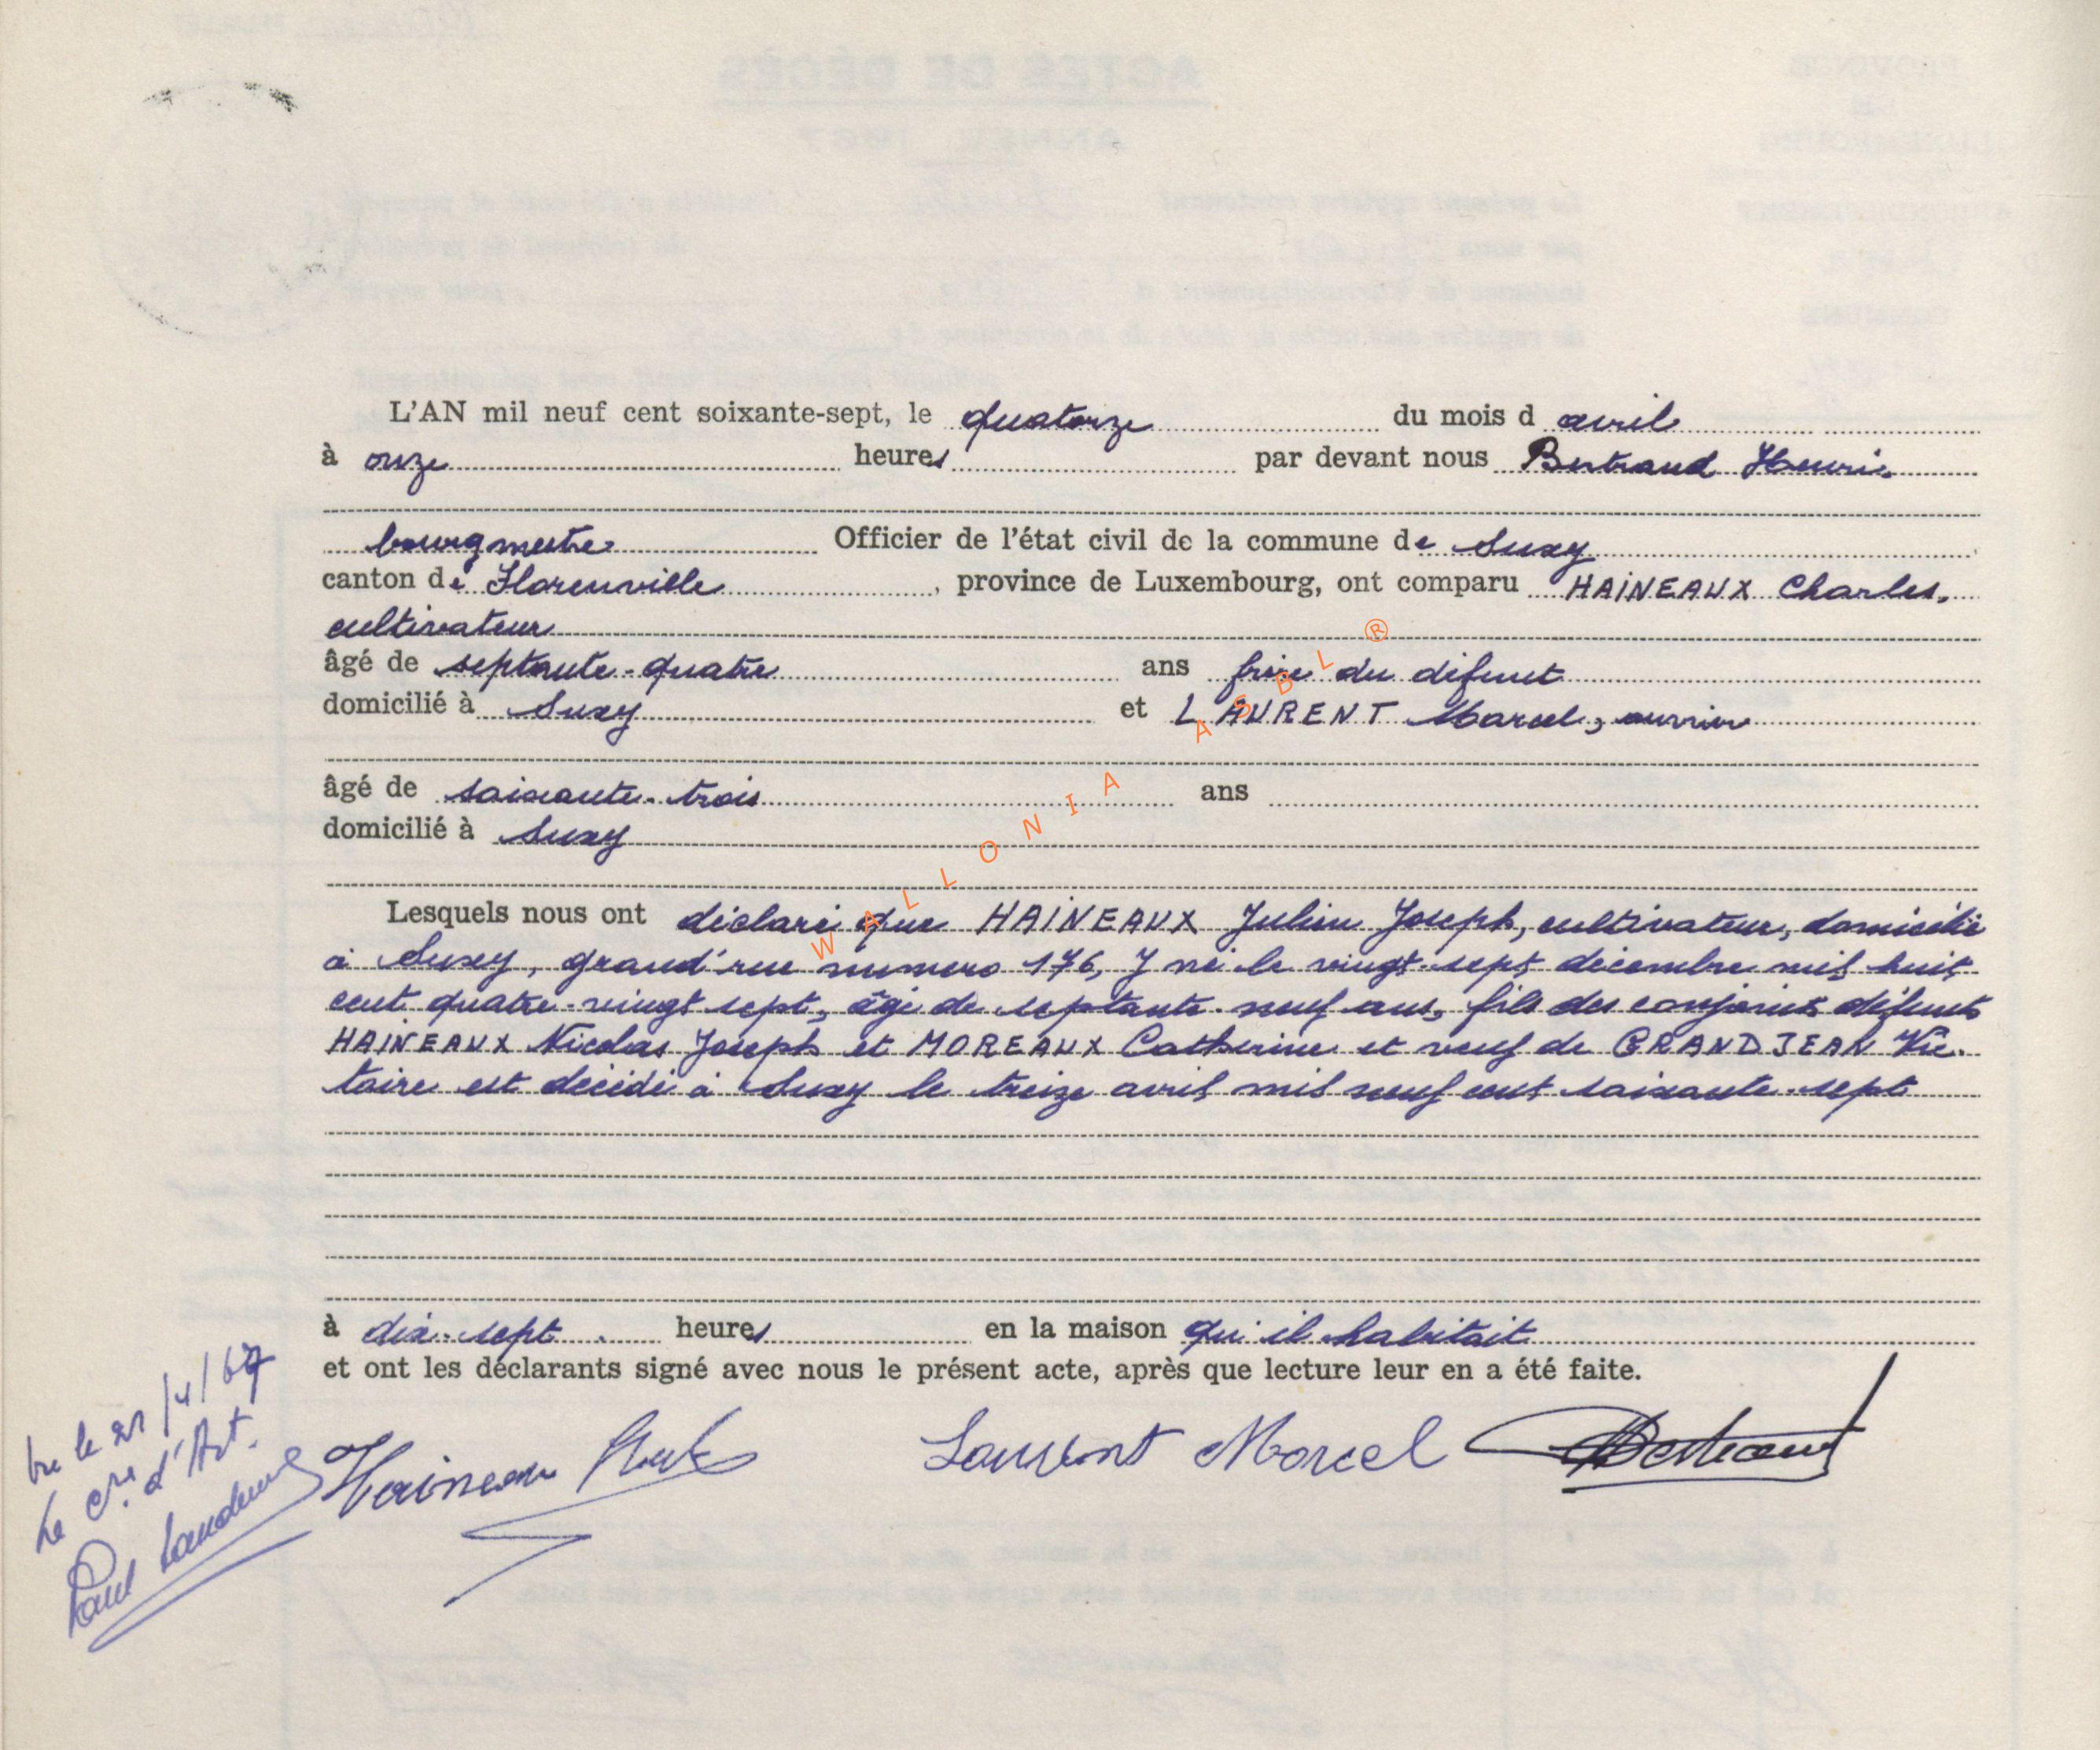 L'AN mil neuf cent soixante-sept, le quatorze du mois d avril
à onze heures par devant nous Bertrand Henri
bourgmestre Officier de l'état civil de la commune de Suxy
canton de Florenville, province de Luxembourg, ont comparu HAINEAUX Charles,
cultivateur
âgé de septante-quatre ans frère du défunt
domicilié à Suxy et LAURENT Marcel, ouvrier
âgé de soixante-trois ans
domicilié à Suxy
Lesquels nous ont déclaré que HAINEAUX Julien Joseph, cultivateur, domicilié
à Suxy, grand'rue numéro 176, y né le vingt-sept décembre mil huit
cent quatre-vingt sept, âgé de septante-neuf ans, fils des conjoints défunts
HAINEAUX Nicolas Joseph et MOREAUX Catherine et veuf de GRANDJEAN Vic-
toire est décédé à Suxy le treize avril mil neuf cent soixante-sept
à dix-sept heures en la maison qu'il habitait
et ont les déclarants signé avec nous le présent acte, après que lecture leur en a été faite.
Vu le 21/4/67
Le Cre d'Art.
Paul
Haineaux Laurent Marcel HBertrand
WALLONIA ASBL ®